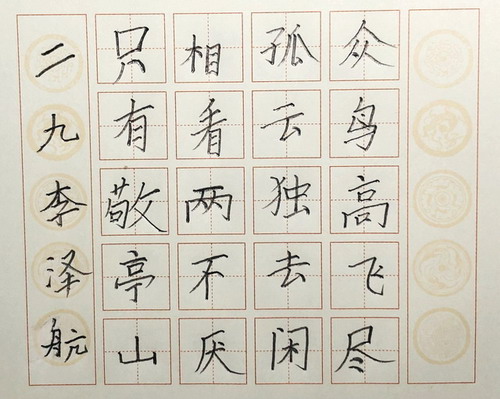 众鸟高飞尽
孤云独去闲
相看两不厌
只有敬亭山
二九李泽航